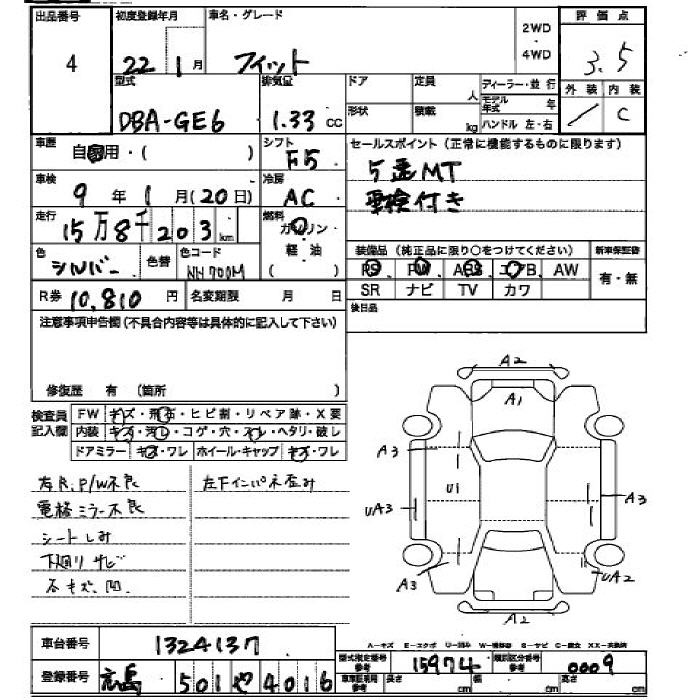 出品番号 初度登録年月 車名・グレード 2WD ・ 4WD 評価点
4 22 1月 フィット 3.5
型式 排気量 ドア 定員 人 ディーラー・並行 外装 内装
DBA-GE6 1.33 cc 形状 積載 kg モデル年式 年 ハンドル 左・右 / C
車歴 自家用・( ) シフト F5 セールスポイント(正常に機能するものに限ります)
5速MT
車検 9年1月(20日) 冷房 AC 車検付き
走行 15万8千203km 燃料 ガソリン 軽油 ( )
色 シルバー 色替 色コード NH700M 装備品(純正品に限り○をつけてください) 新車保証書
PS PW ABS エアB AW 有・無
R券 10,810円 名変期限 月 日 SR ナビ TV カワ
注意事項申告欄(不具合内容等は具体的に記入して下さい) 後日品
修復歴 有 (箇所 )
検査員記入欄 FW キズ・飛石・ヒビ割・リペア跡・X要
内装 キズ・汚れ・コゲ・穴・スレ・ヘタリ・破し
ドアミラー キズ・ワレ ホイール・キャップ キズ・ワレ
左R.P/W不良 左F インパネ歪み
電格ミラー不良
シートしみ
下廻りサビ
各キズ、凹
A2
A1
A3
U1
UA3 A3
A3 UA2
A2
A-キズ E-エクボ U-凹み W-補修跡 S-サビ C-腐食 XX-交換済
車台番号 1324137
型式指定番号 参考 15974 類別区分番号 参考 0009
登録番号 広島 501 や 4016
車庫証明用 参考 長さ cm 幅 cm 高さ cm